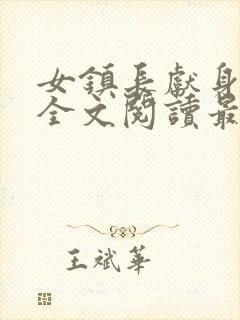 女鎮長獻身
全文閱讀最
王斌華